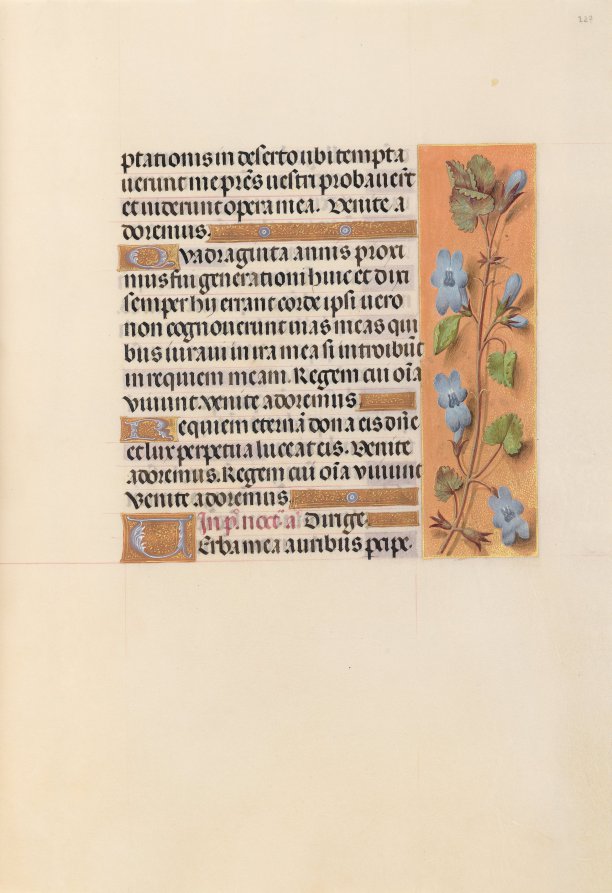 227
ptationis in deserto ubi tempta
uerunt me pr̄es uestri probauer̄t
et uiderunt opera mea. Venite a
doremus.
Quadraginta annis proxi
mus fui generationi huic et dixi
semper hij errant corde ipsi uero
non cognouerunt uias meas qui
bus iuraui in ira mea si introibūt
in requiem meam. Regem cui oīa
viuunt. venite adoremus
Requiem eternā dona eis dn̄e
et lux perpetua luceat eis. Venite
adoremus. Regem cui oīa viuunt
Venite adoremus.
In p̄. noct̄. a Dirige.
UErba mea auribus pcipe.